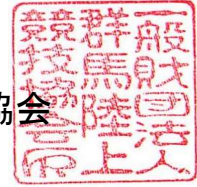 協会
一般財團法人
群馬陸上
競技協會印